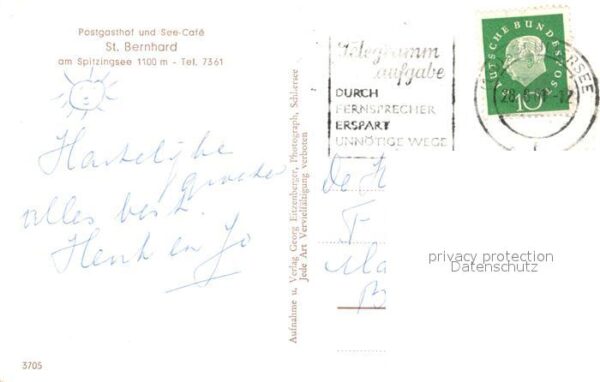 Postgasthof und See-Café
St. Bernhard
am Spitzingsee 1100 m - Tel. 7361
Hartelijke
groeten
alles best.
Henk en Jo
3705
Aufnahme u. Verlag Georg Eitzenberger, Photograph, Schliersee
Jede Art Vervielfältigung verboten
Telegramm
aufgabe
DURCH
FERNSPRECHER
ERSPART
UNNÖTIGE WEGE
DEUTSCHE BUNDESPOST
10
De
F
Ma
B
privacy protection
Datenschutz